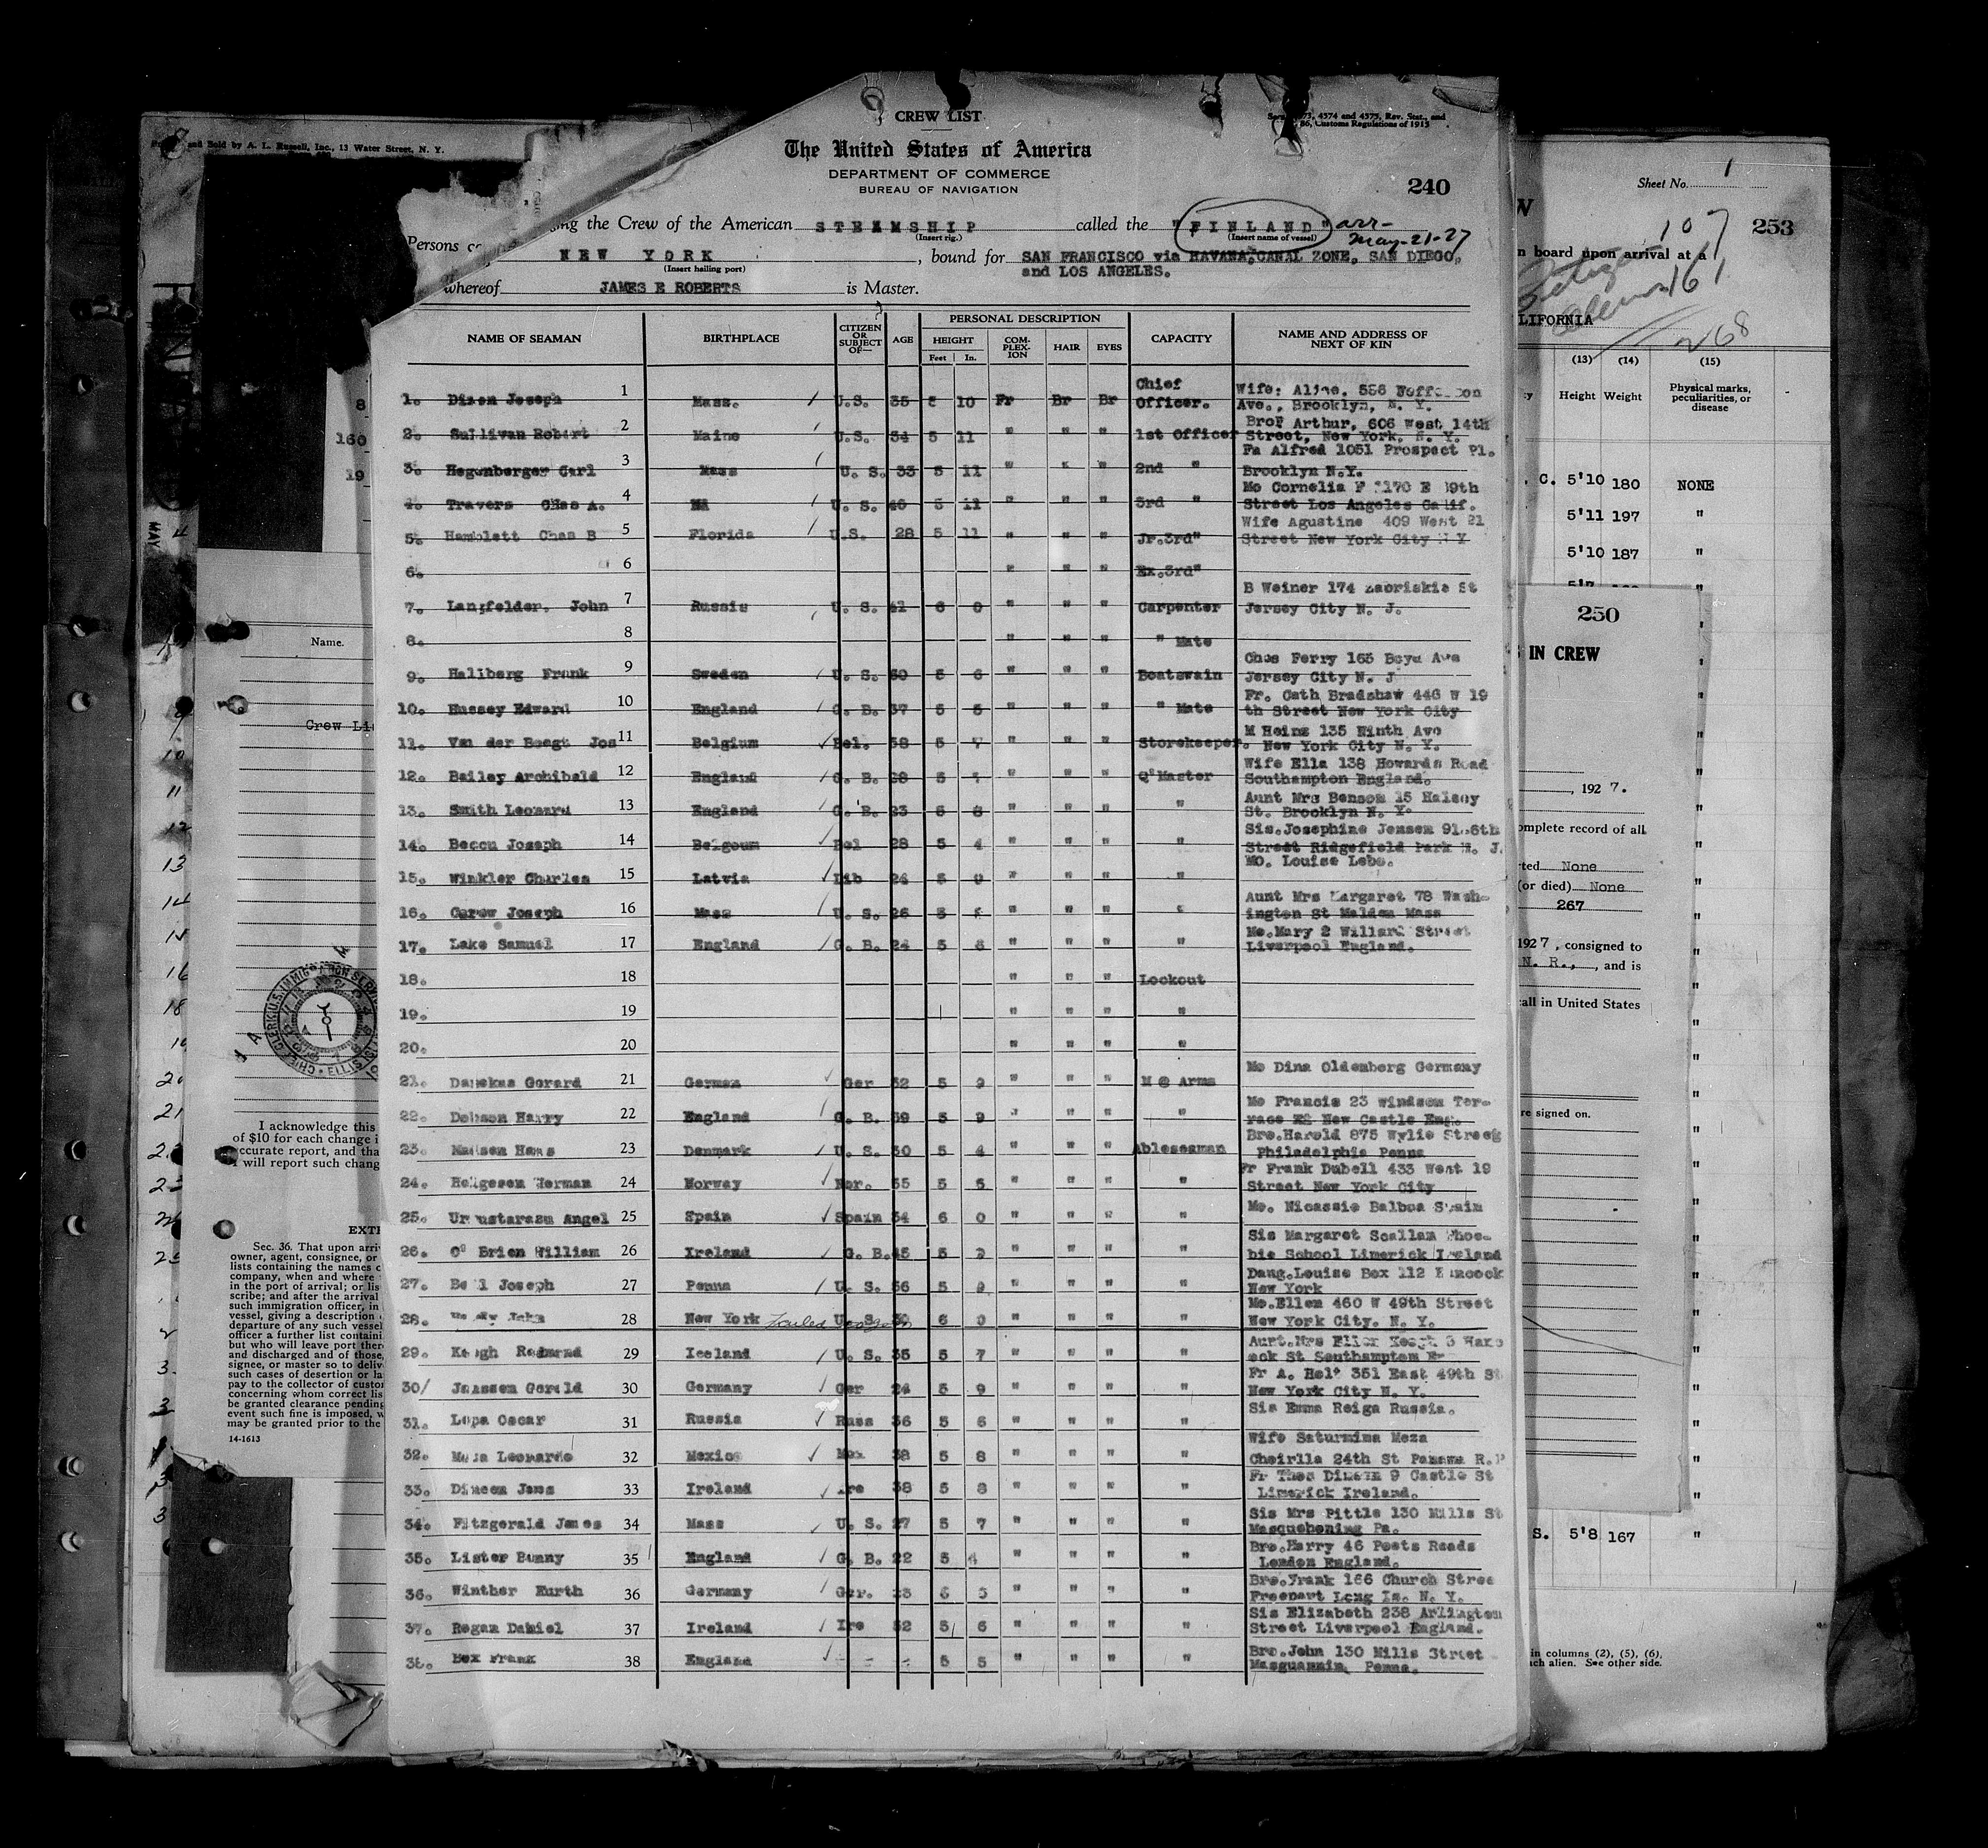 and Sold by A. L. Russell, Inc., 13 Water Street, N. Y.
CREW LIST
4374 and 4375, Rev. Stat., and
86, Customs Regulations of 1915
The United States of America
DEPARTMENT OF COMMERCE
BUREAU OF NAVIGATION
240
the Crew of the American STEAMSHIP called the "FINLAND" arr-
(Insert rig.) (Insert name of vessel) May-21-27
Persons
NEW YORK, bound for SAN FRANCISCO via HAVANA, CANAL ZONE, SAN DIEGO,
(Insert hailing port) and LOS ANGELES.
whereof JAMES E ROBERTS is Master.
NAME OF SEAMAN BIRTHPLACE CITIZEN OR SUBJECT OF— AGE PERSONAL DESCRIPTION CAPACITY NAME AND ADDRESS OF NEXT OF KIN
HEIGHT COM-PLEX-ION HAIR EYES
Feet In.
1. Dixon Joseph 1 Mass. U.S. 35 5 10 Fr Br Br Chief Officer. Wife: Aline.
Ave., Brooklyn, N. Y.
2. Sullivan Robert 2 Maine U.S. 34 5 11 " " " 1st Officer Bro? Arthur, 606 West 14th
Street, New York, N. Y.
3. Hegenberger Carl 3 Mass U. S. 33 5 11 " " " 2nd " Fa Alfred 1051 Prospect Pl.
Brooklyn N.Y.
4. Travers Chas A. 4 U. S. 40 5 11 " " " 3rd " Mo Cornelia F
Street Los Angeles Calif.
5. Hamblett Chas B 5 Florida U.S. 28 5 11 " " " Jr.3rd" Wife Agustine 409 West 21
Street New York City N Y
6. 6 " " " Ex.3rd"
7. Langfelder. John 7 Russia U. S. 41 6 0 " " " Carpenter B Weiner 174 Zabriskie St
Jersey City N. J.
8. 8 " " " " Mate
9. Hallberg Frank 9 Sweden U. S. 30 5 6 " " " Boatswain Chas Ferry 163 Boyd Ave
Jersey City N. J
10. Hussey Edward 10 England G. B. 37 5 5 " " " " Mate Fr. Cath Bradshaw 446 W 19
th Street New York City
11. Van der Boegt Jos 11 Belgium Bel. 38 5 7 " " " Storekeeper. M Heinz 135 Ninth Ave
New York City N. Y.
12. Bailey Archibald 12 England G. B. 28 5 " " " Q'Master Wife Ella 138 Howards Road
Southampton England.
13. Smith Leonard 13 England G. B. 23 5 8 " " " " Aunt Mrs Benson 15 Halsey
St. Brooklyn N. Y.
14. Beccu Joseph 14 Belgoum Bel 28 5 4 " " " " Sis.Josephine Jensen
Street Ridgefield Park N. J.
15. Winkler Charles 15 Latvia Lib 24 5 9 " " " " Mo. Louise Lebo.
16. Carew Joseph 16 Mass U. S. 26 5 " " " Aunt Mrs Margaret 78 Wash-
ington St Malden Mass
17. Lake Samuel 17 England G. B. 24 5 6 " " " " Mo.Mary 2 Willard Street
Liverpool England.
18. 18 " " " Lookout
19. 19 " " " "
20. 20 " " " "
21. Danekas Gerard 21 German Ger 32 5 9 " " " M @ Arms Mo Dina Oldenberg Germany
22. Dobson Harry 22 England G. B. 39 5 9 " " " Mo Francis 23 Windsom Ter-
race New Castle Eng.
23. Madsen Hans 23 Denmark U. S. 30 5 4 " " " Ableseaman Bro.Harold 875 Wylie Street
Philadelphia Penna
24. Helgesen Herman 24 Norway Nor. 35 5 5 " " " " Fr Frank Dubell 433 West 19
Street New York City
25. Angel 25 Spain Spain 34 6 0 " " " " Mo. Nicassie Balboa Spain
26. O' Brien William 26 Ireland G. B. 45 5 " " " " Sis Margaret Scallan Phoe-
bie School Limerick Ireland
27. Bell Joseph 27 Penna U. S. 36 5 9 " " " " Daug.Louise Box 112 Hancock
New York
28. John 28 New York Failed to join U. S. 30 6 0 " " " " Mo.Ellen 460 W 49th Street
New York City. N. Y.
29. Keogh Redmond 29 Iceland U. S. 35 5 7 " " " " Aunt.Mrs
St Southampton
30/ Janssen Gerald 30 Germany Ger 24 5 9 " " " " Fr A. Holt 351 East 49th St
New York City N. Y.
31. Lepa Oscar 31 Russia Russ 36 5 6 " " " " Sis Emma Reiga Russia.
32. Meza Leonardo 32 Mexico Mex 38 5 8 " " " " Wife Saturmina Meza
Cheirlla 24th St Panama R.P
33. Dineen Jams 33 Ireland Ire 38 5 8 " " " " Fr Thos Dineen 9 Castle St
Limerick Ireland.
34. Fitzgerald James 34 Mass U. S. 27 5 7 " " " " Sis Mrs Pittle 130 Mills St
Masquehoning Pa.
35. Lister Bunny 35 England G. B. 22 5 4 " " " " Bro.Harry 46 Poets Roads
London England.
36. Winther Kurth 36 Germany Ger. 23 " " " " Bro.Frank 166 Church Stree
Freeport Long Is. N. Y.
37. Regan Daniel 37 Ireland Ire 32 5 6 " " " " Sis Elizabeth 238 Arlington
Street Liverpool England.
38. Box Frank 38 England 5 5 " " " " Bro.John 130 Mills Street
Penna.
8
160
19
MAY
Name.
Crew Li
I acknowledge this
of $10 for each change i
ccurate report, and tha
I will report such chang
Sec. 36. That upon arri
owner, agent, consignee, or
lists containing the names o
company, when and where
in the port of arrival; or lis
scribe; and after the arrival
such immigration officer, in
vessel, giving a description
departure of any such vesse
officer a further list containi
but who will leave port ther
and discharged and of those,
signee, or master so to deliv
such cases of desertion or la
pay to the collector of custo
concerning whom correct lis
be granted clearance pending
event such fine is imposed, w
may be granted prior to the
14-1613
Sheet No. 1
253
107
n board upon arrival at a
161
LIFORNIA
268
(13) (14) (15)
Height Weight Physical marks, peculiarities, or disease
C. 5'10 180 NONE
5'11 197 "
5'10 187 "
250
IN CREW
, 1927.
omplete record of all
None
(or died) None
267
1927, consigned to
N. R., and is
call in United States
re signed on.
S. 5'8 167 "
in columns (2), (5), (6),
ch alien. See other side.